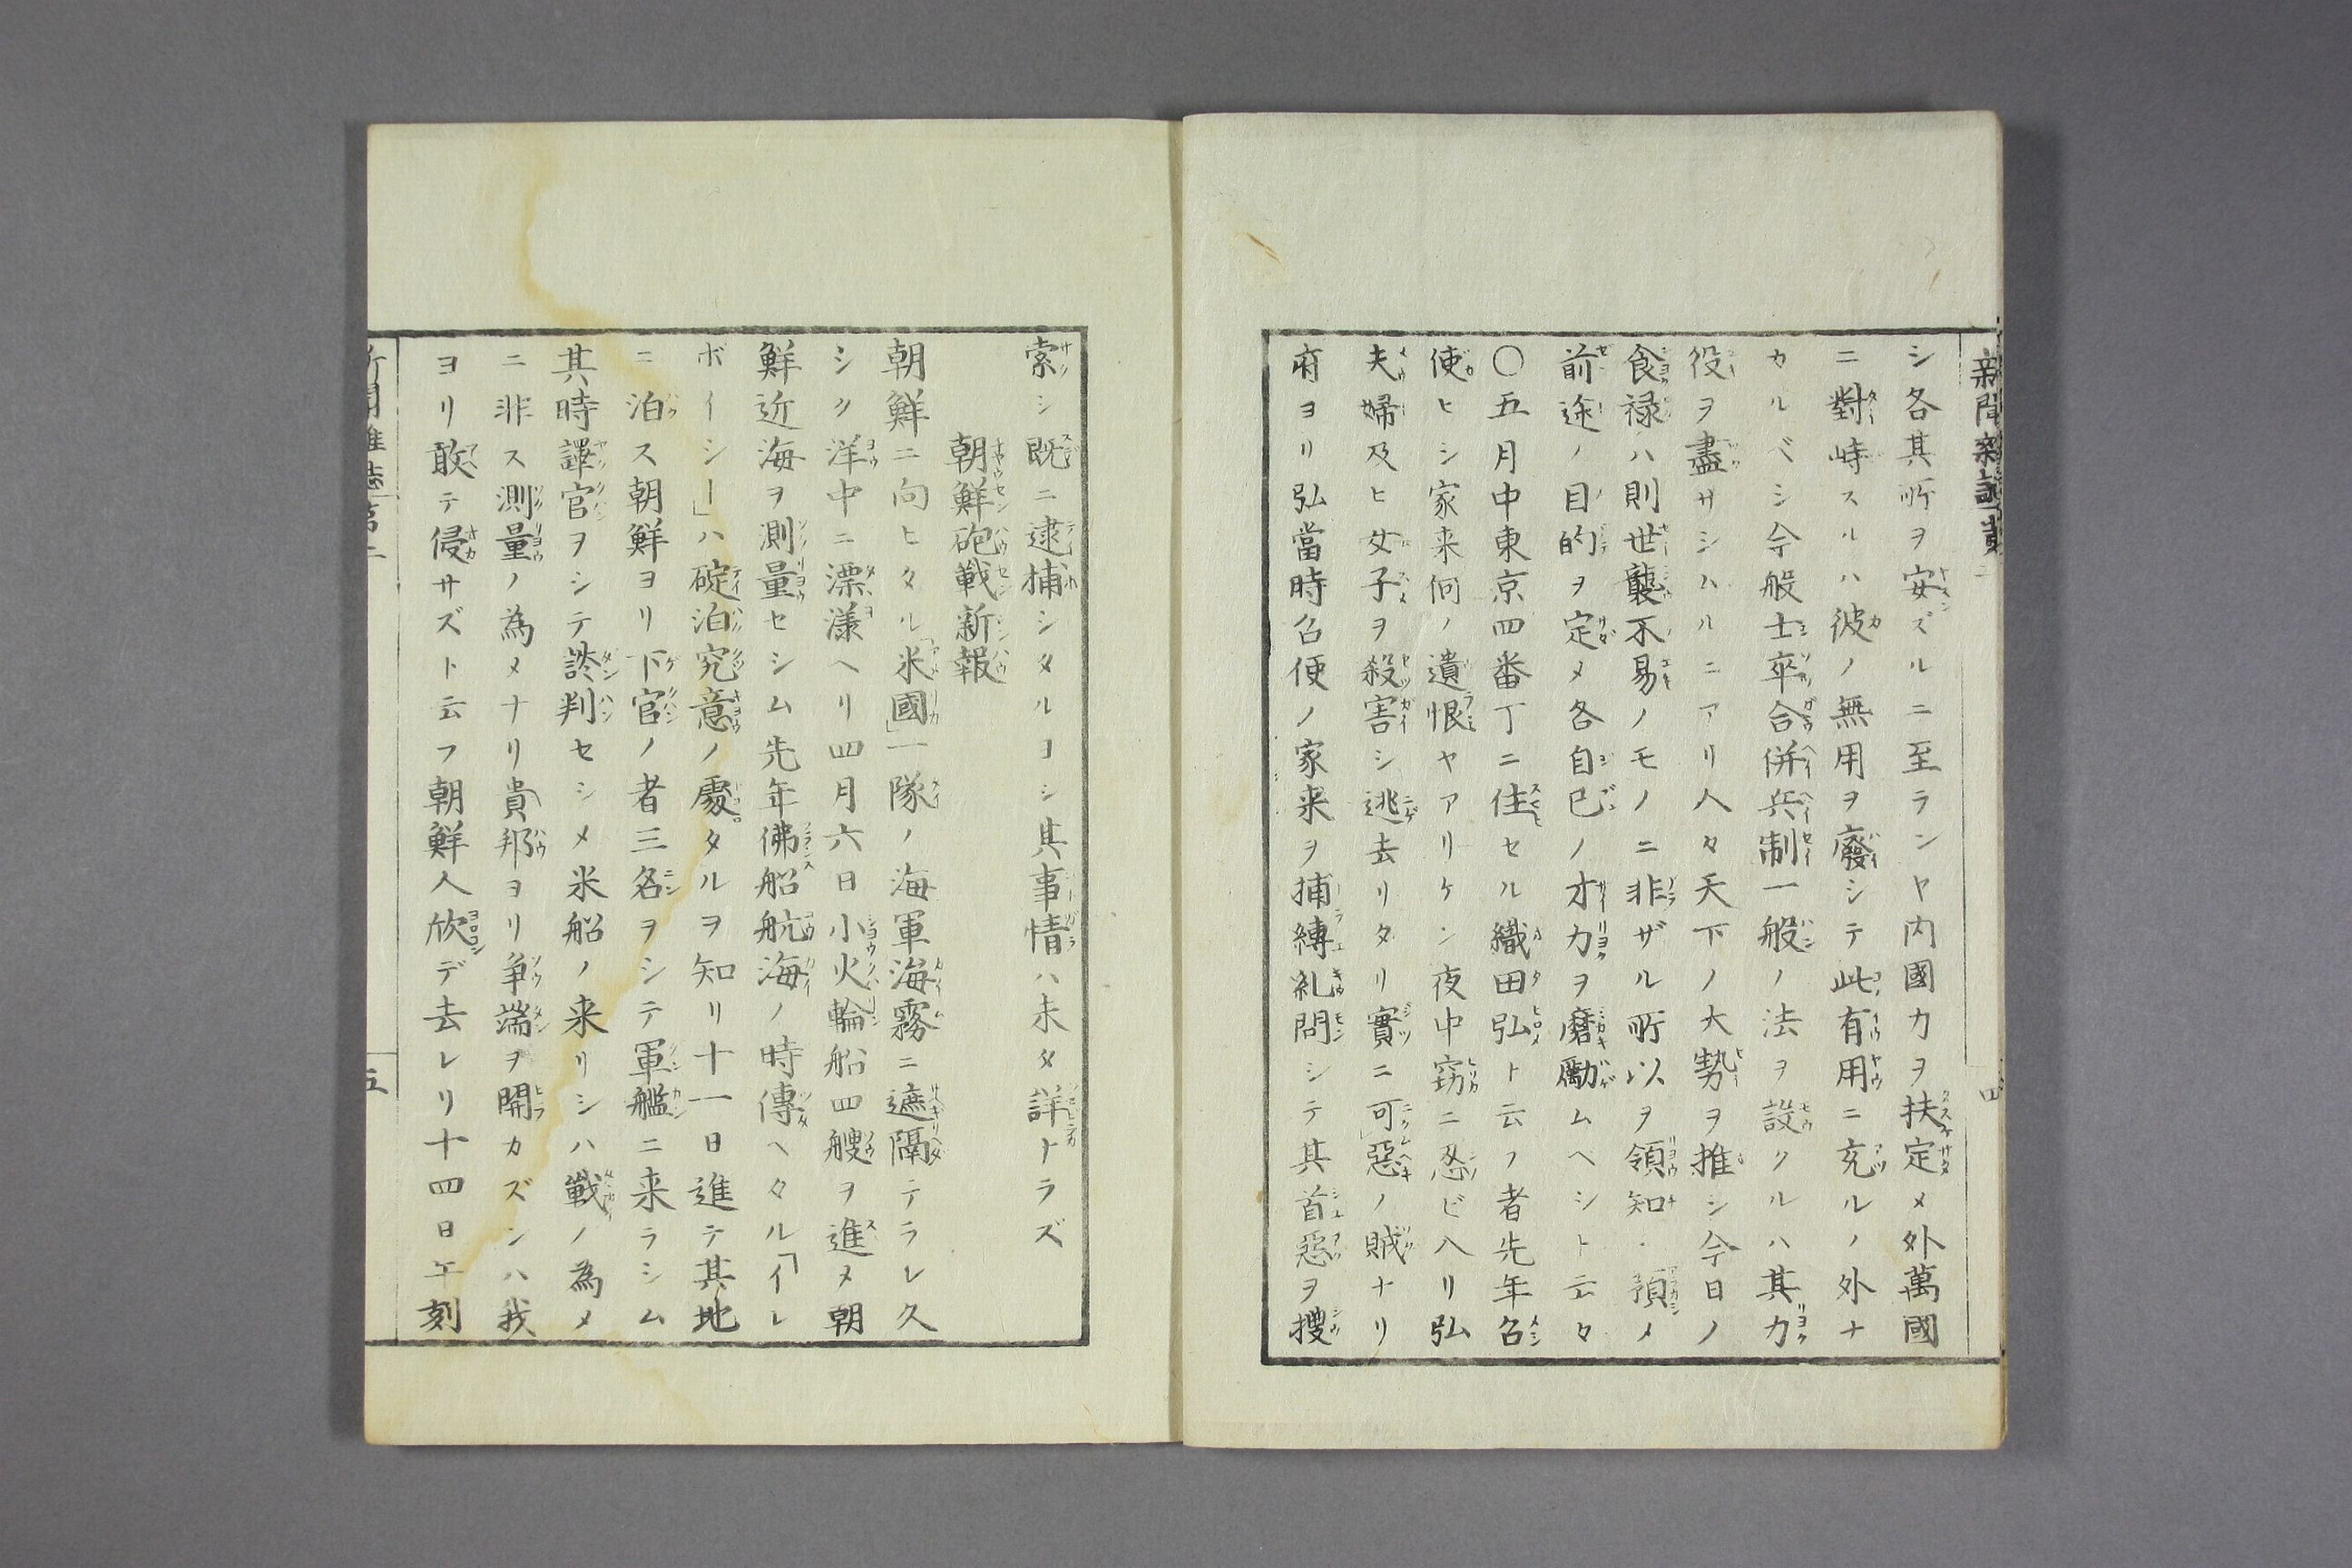 シ各其所ヲ安ズルニ至ランヤ内國力ヲ扶定メ外萬國
ニ對峙スルハ彼ノ無用ヲ廢シテ此有用ニ充ルノ外ナ
カルベシ今般士卒合併兵制一般ノ法ヲ設クルハ其力
役ヲ盡サシムルニアリ人々天下ノ大勢ヲ推シ今日ノ
食禄ハ則世襲不易ノモノニ非ザル所以ヲ領知・預メ
前途ノ目的ヲ定メ各自己ノ才力ヲ磨勵ムヘシト云々
〇五月中東京四番丁ニ住セル織田弘ト云フ者先年召
使ヒシ家来何ノ遺恨ヤアリケン夜中窃ニ忍ビ入リ弘
夫婦及ヒ女子ヲ殺害シ逃去リタリ實ニ可惡ノ賊ナリ
府ヨリ弘當時召使ノ家来ヲ捕縛糺問シテ其首惡ヲ搜
四
索シ既ニ逮捕シタルヨシ其事情ハ未タ詳トラズ
朝鮮砲戰新報
朝鮮ニ向ヒタル「米國」一隊ノ海軍海霧ニ遮隔テラレ久
シク洋中ニ漂漾ヘリ四月六日小火輪船四艘ヲ進メ朝
鮮近海ヲ測量セシム先年佛船航海ノ時傳ヘタル「イレ
ボイシー」ハ碇泊究意ノ處タルヲ知リ十一日進テ其地
ニ泊ス朝鮮ヨリ下官ノ者三名ヲシテ軍艦ニ来ラシム
其時譯官ヲシテ談判セシメ米船ノ来リシハ戰ノ為メ
ニ非ス測量ノ為メナリ貴邦ヨリ争端ヲ開カズンハ我
ヨリ敢テ侵サズト云フ朝鮮人欣デ去レリ十四日午刻
新聞雑誌第二
五